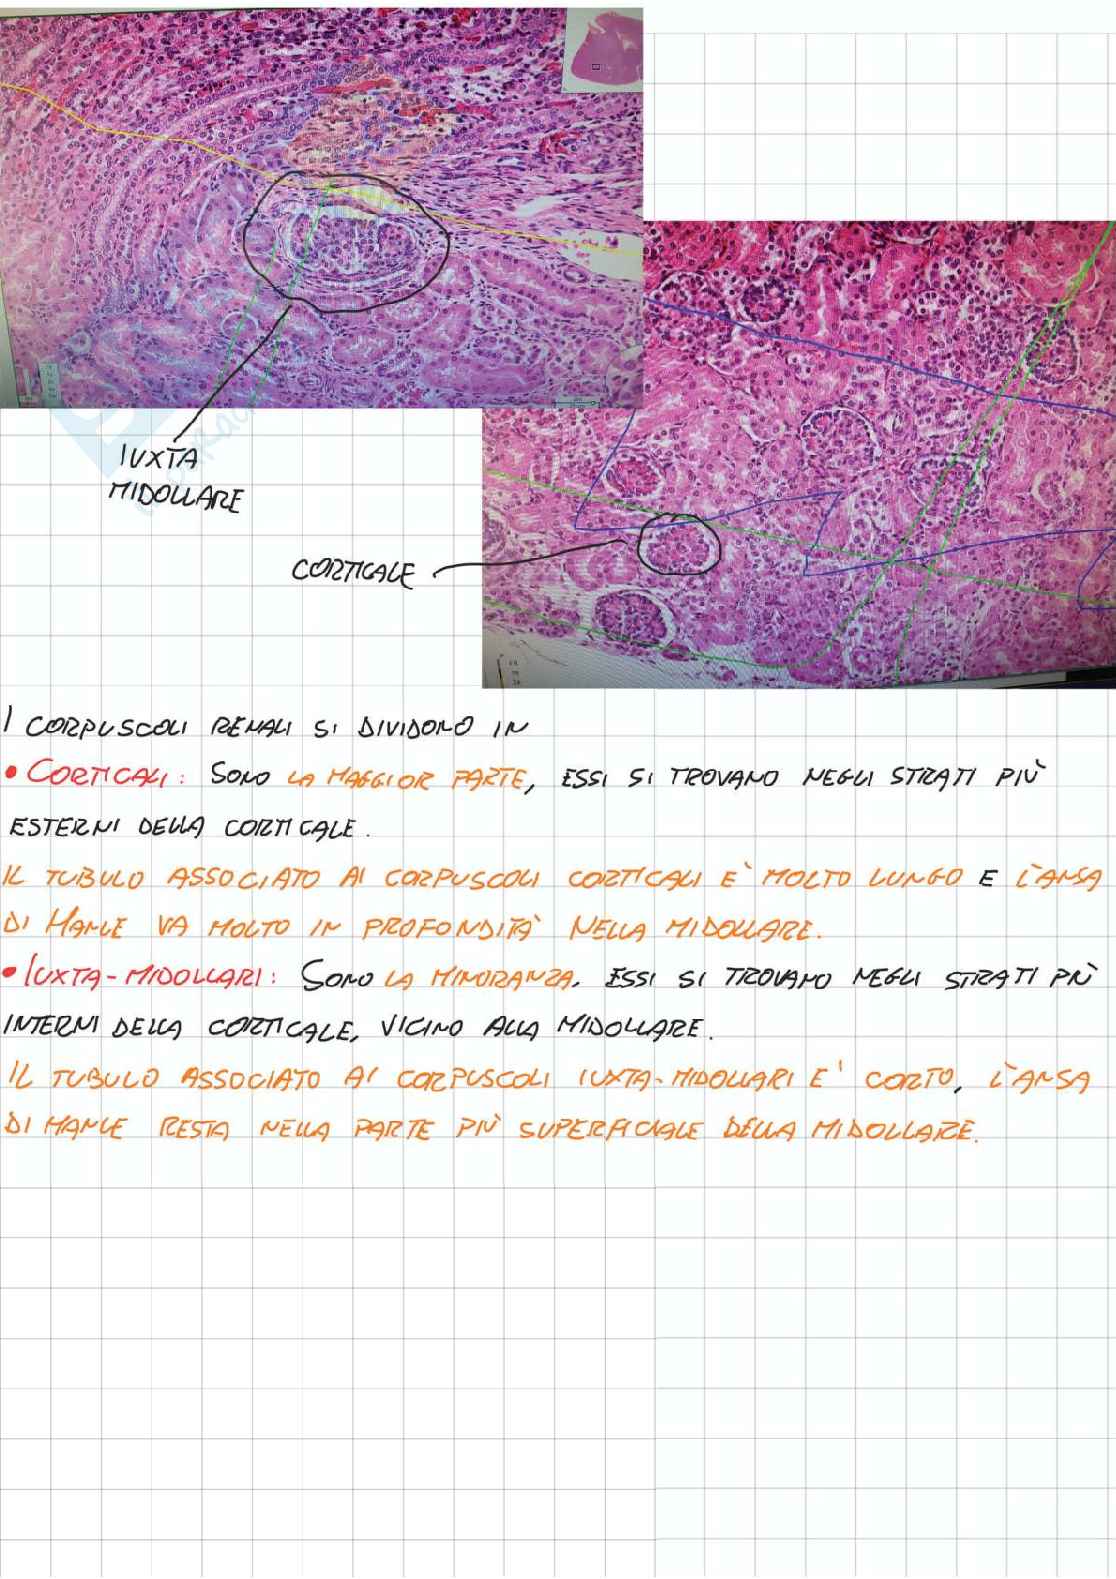 IUXTA
MIDOLLARE
CORTICALE
I CORPUSCOLI RENALI SI DIVIDONO IN
• CORTICALI: SONO LA MAGGIOR PARTE, ESSI SI TROVANO NEGLI STRATI PIÙ
ESTERNI DELLA CORTICALE.
IL TUBULO ASSOCIATO AI CORPUSCOLI CORTICALI E' MOLTO LUNGO E L'ANSA
DI HANLE VA MOLTO IN PROFONDITÀ NELLA MIDOLLARE.
• IUXTA-MIDOLLARI: SONO LA MINORANZA. ESSI SI TROVANO NEGLI STRATI PIÙ
INTERNI DELLA CORTICALE, VICINO ALLA MIDOLLARE.
IL TUBULO ASSOCIATO AI CORPUSCOLI IUXTA-MIDOLLARI E' CORTO, L'ANSA
DI HANLE RESTA NELLA PARTE PIÙ SUPERFICIALE DELLA MIDOLLARE.